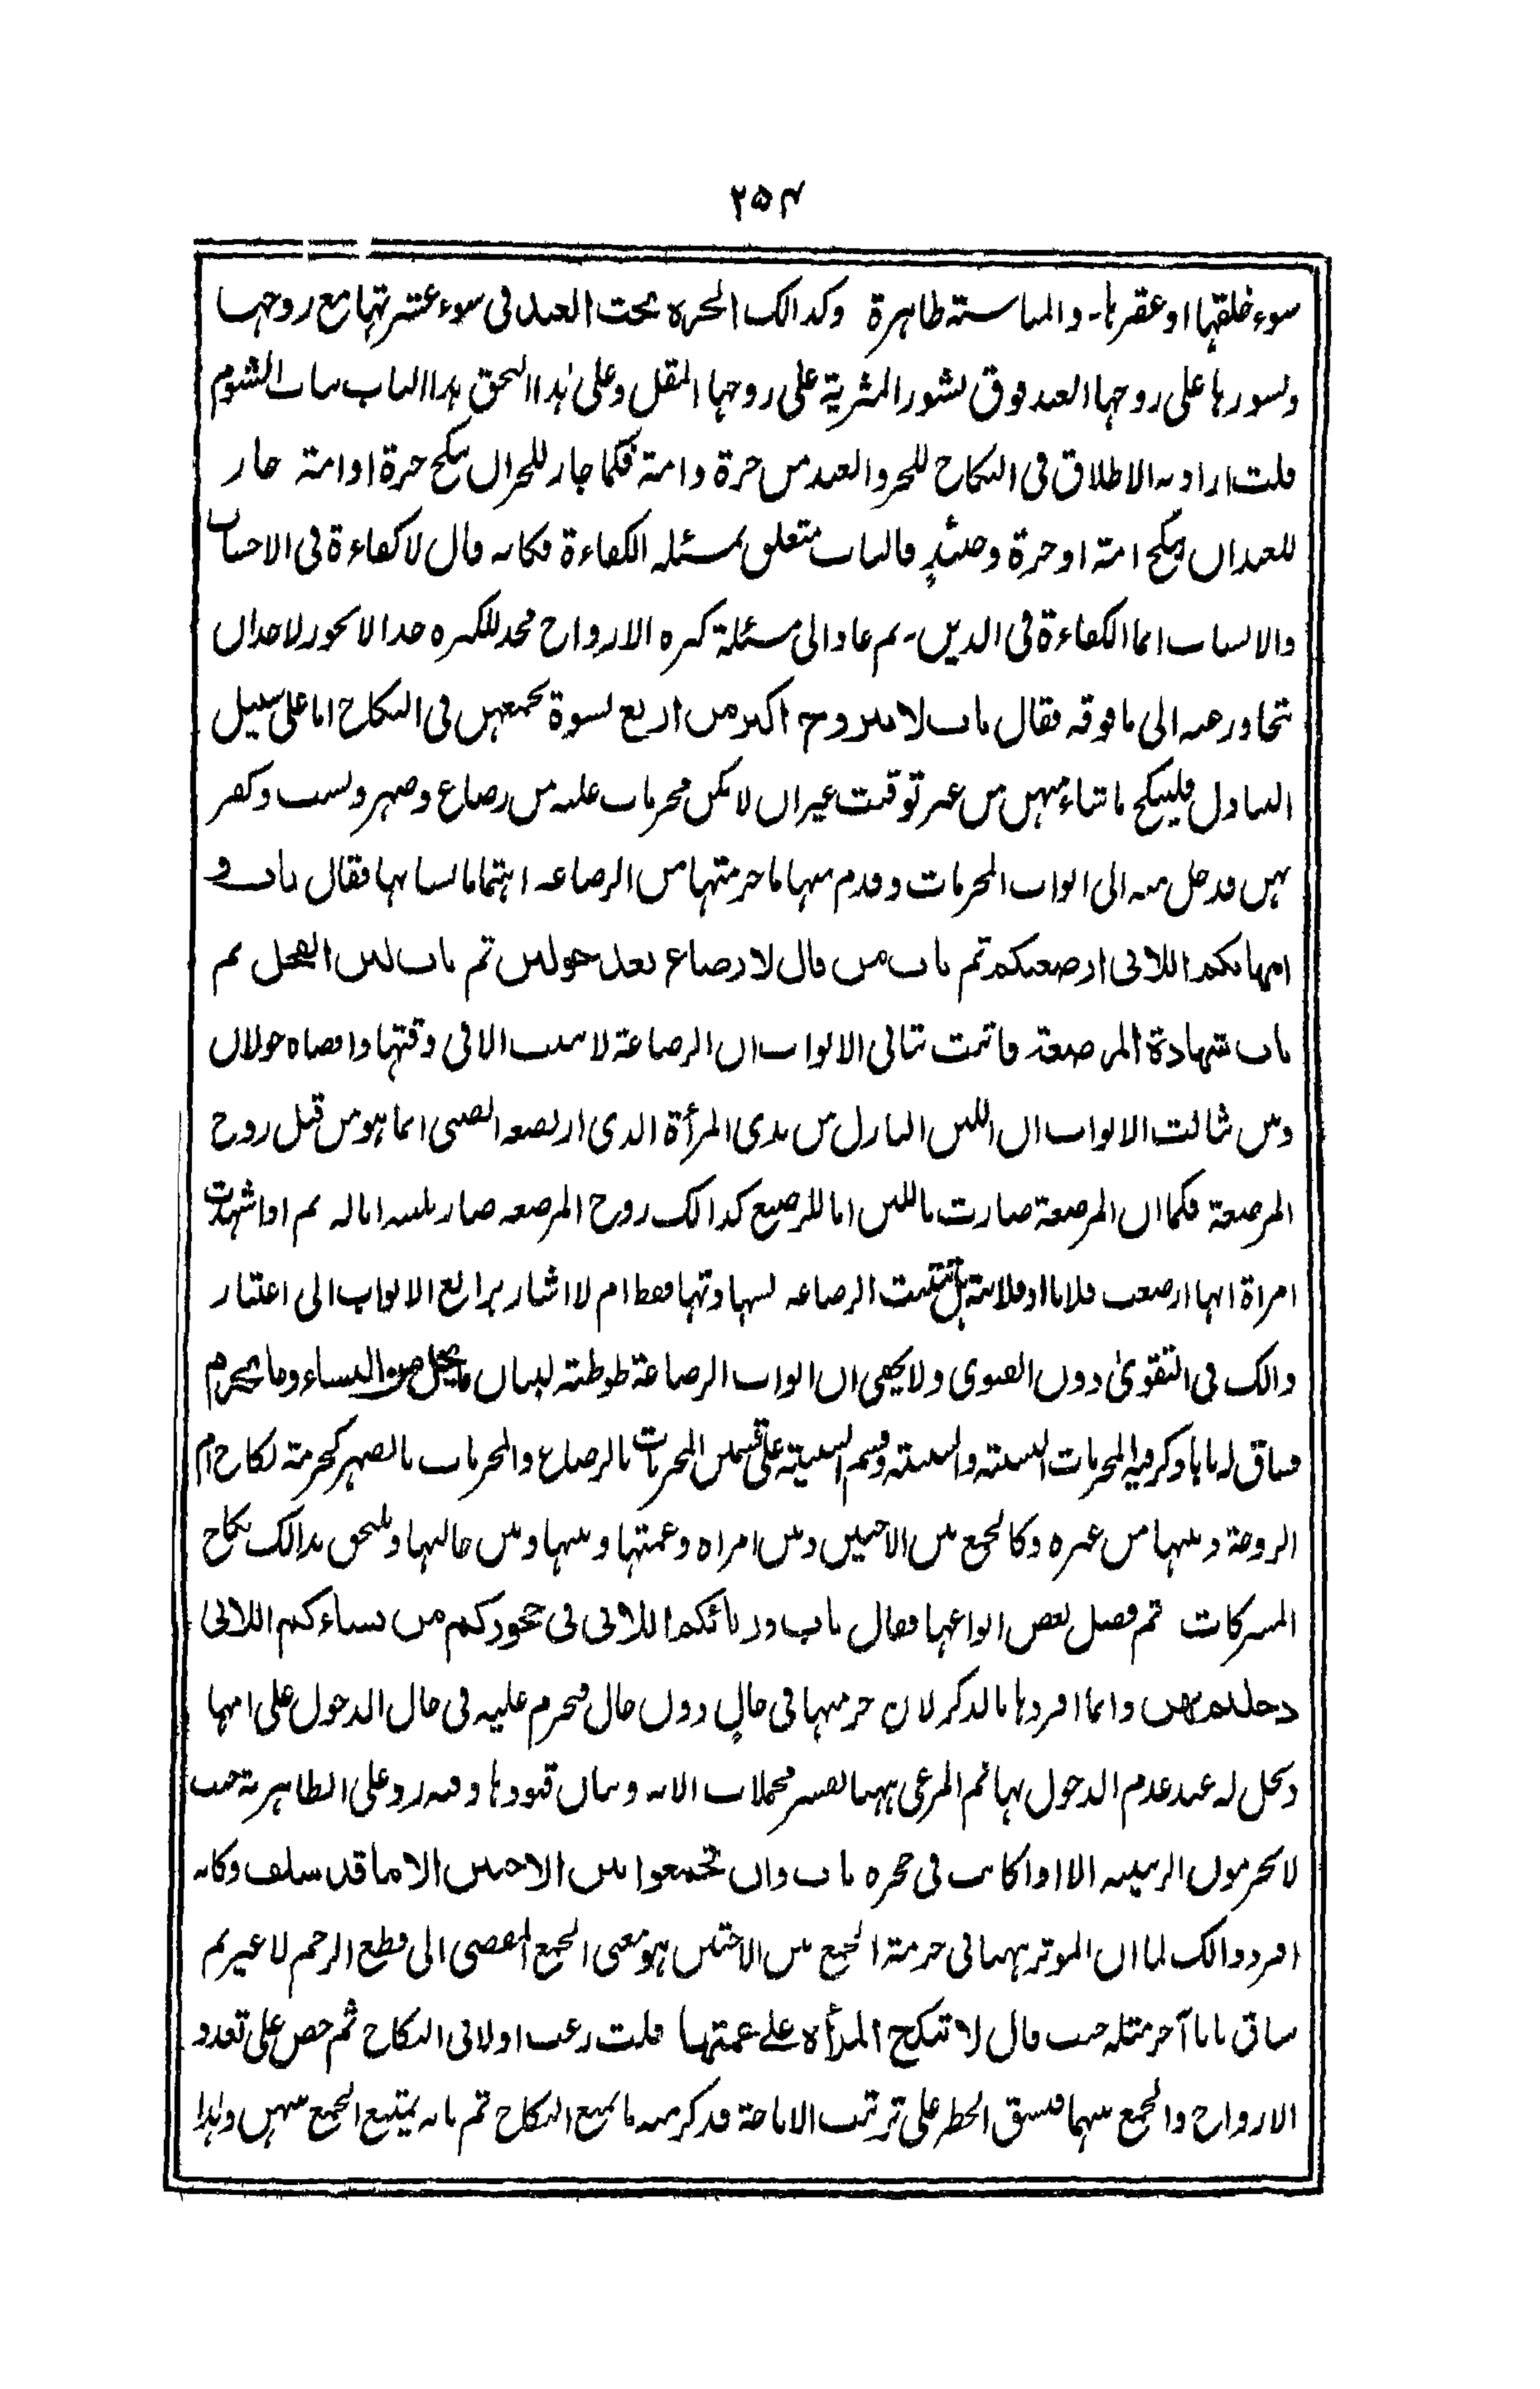 ۲۵۴
سوء خلقها او عقرها۔ والمناسبة ظاهرة وكذالك الحرة تحت العبد فى سوء عشرتها مع زوجها
ونشوزها على زوجها العبد فوق نشوز المثرية على زوجها المقل وعلى هذا التحق هذا الباب بباب الشوم
قلت اراد به الاطلاق فى النكاح للحر والعبد من حرة وامة فكما جاز للحر ان ينكح حرة او امة جاز
للعبد ان ينكح امة او حرة وحينئذ فالباب متعلق بمسئلة الكفاءة فكانه قال لا كفاءة فى الاحساب
والانساب انما الكفاءة فى الدين۔ ثم عاد الى مسئلة كثرة الازواج فحد للكثرة حدا لا يجوز لاحد ان
يتجاوز عنه الى ما فوقه فقال باب لا يتزوج اكثر من اربع نسوة يجمعهن فى النكاح اما على سبيل
التبادل فلينكح ما شاء منهن من غير توقيت غير ان لا يكن محرمات عليه من رضاع وصهر ونسب وكفر
بهن فدخل منه الى ابواب المحرمات وقدم منها ما حرمتها من الرضاعة اهتماما بشانها فقال باب و
امهاتكم اللاتى ارضعنكم ثم باب من قال لا رضاع بعد حولين ثم باب لبن الفحل ثم
باب شهادة المرضعة فاثبت بثانى الابواب ان الرضاعة لا تثبت الا فى وقتها واقصاه حولان
ومن ثالث الابواب ان اللبن النازل من ثدى المرأة الذى ارتضعه الصبى انما هو من قبل زوج
المرضعة فكما ان المرضعة صارت باللبن اما للرضيع كذالك زوج المرضعة صار بلبنه ابا له ثم اذا شهدت
امراة انها ارضعت فلانا او فلانة هل تثبت الرضاعة بشهادتها فقط ام لا اشار برابع الابواب الى اعتبار
ذالك فى التقوىٰ دون الفتوى ولا يخفى ان ابواب الرضاعة توطئة لبيان ما يحل من النساء وما يحرم
فساق له بابا وذكر فيه المحرمات النسبية والسببية وقسم السببية على قسمين المحرمات بالرضاع والمحرمات بالصهر كحرمة نكاح ام
الزوجة وبنتها من غيره وكالجمع بين الاختين وبين امراة وعمتها وبينها وبين خالتها ويلتحق بذالك نكاح
المشركات ثم فصل بعض انواعها فقال باب وربائبكم اللاتى فى حجوركم من نساءكم اللاتى
دخلتم بهن وانما افردها بالذكر لان حرمتها فى حال دون حال فتحرم عليه فى حال الدخول على امها
وتحل له عند عدم الدخول بها ثم المرعى ههنا تفسير محملات الاية وبيان قيودها وفيه رد على الظاهرية حيث
لا يحرمون الربيبة الا اذا كانت فى حجره باب وان تجمعوا بين الاختين الا ما قد سلف وكانه
افرد ذالك لما ان الموثر ههنا فى حرمة الجمع بين الاختين هو معنى الجمع المفضى الى قطع الرحم لا غير ثم
ساق بابا آخر مثله حيث قال لا تنكح المرأة على عمتها قلت رغب اولا فى النكاح ثم حض على تعدد
الازواج والجمع بينهما فنسق الحظر على ترتيب الاباحة فذكر منه ما يمنع النكاح ثم ما به يمتنع الجمع بينهن ولهذا